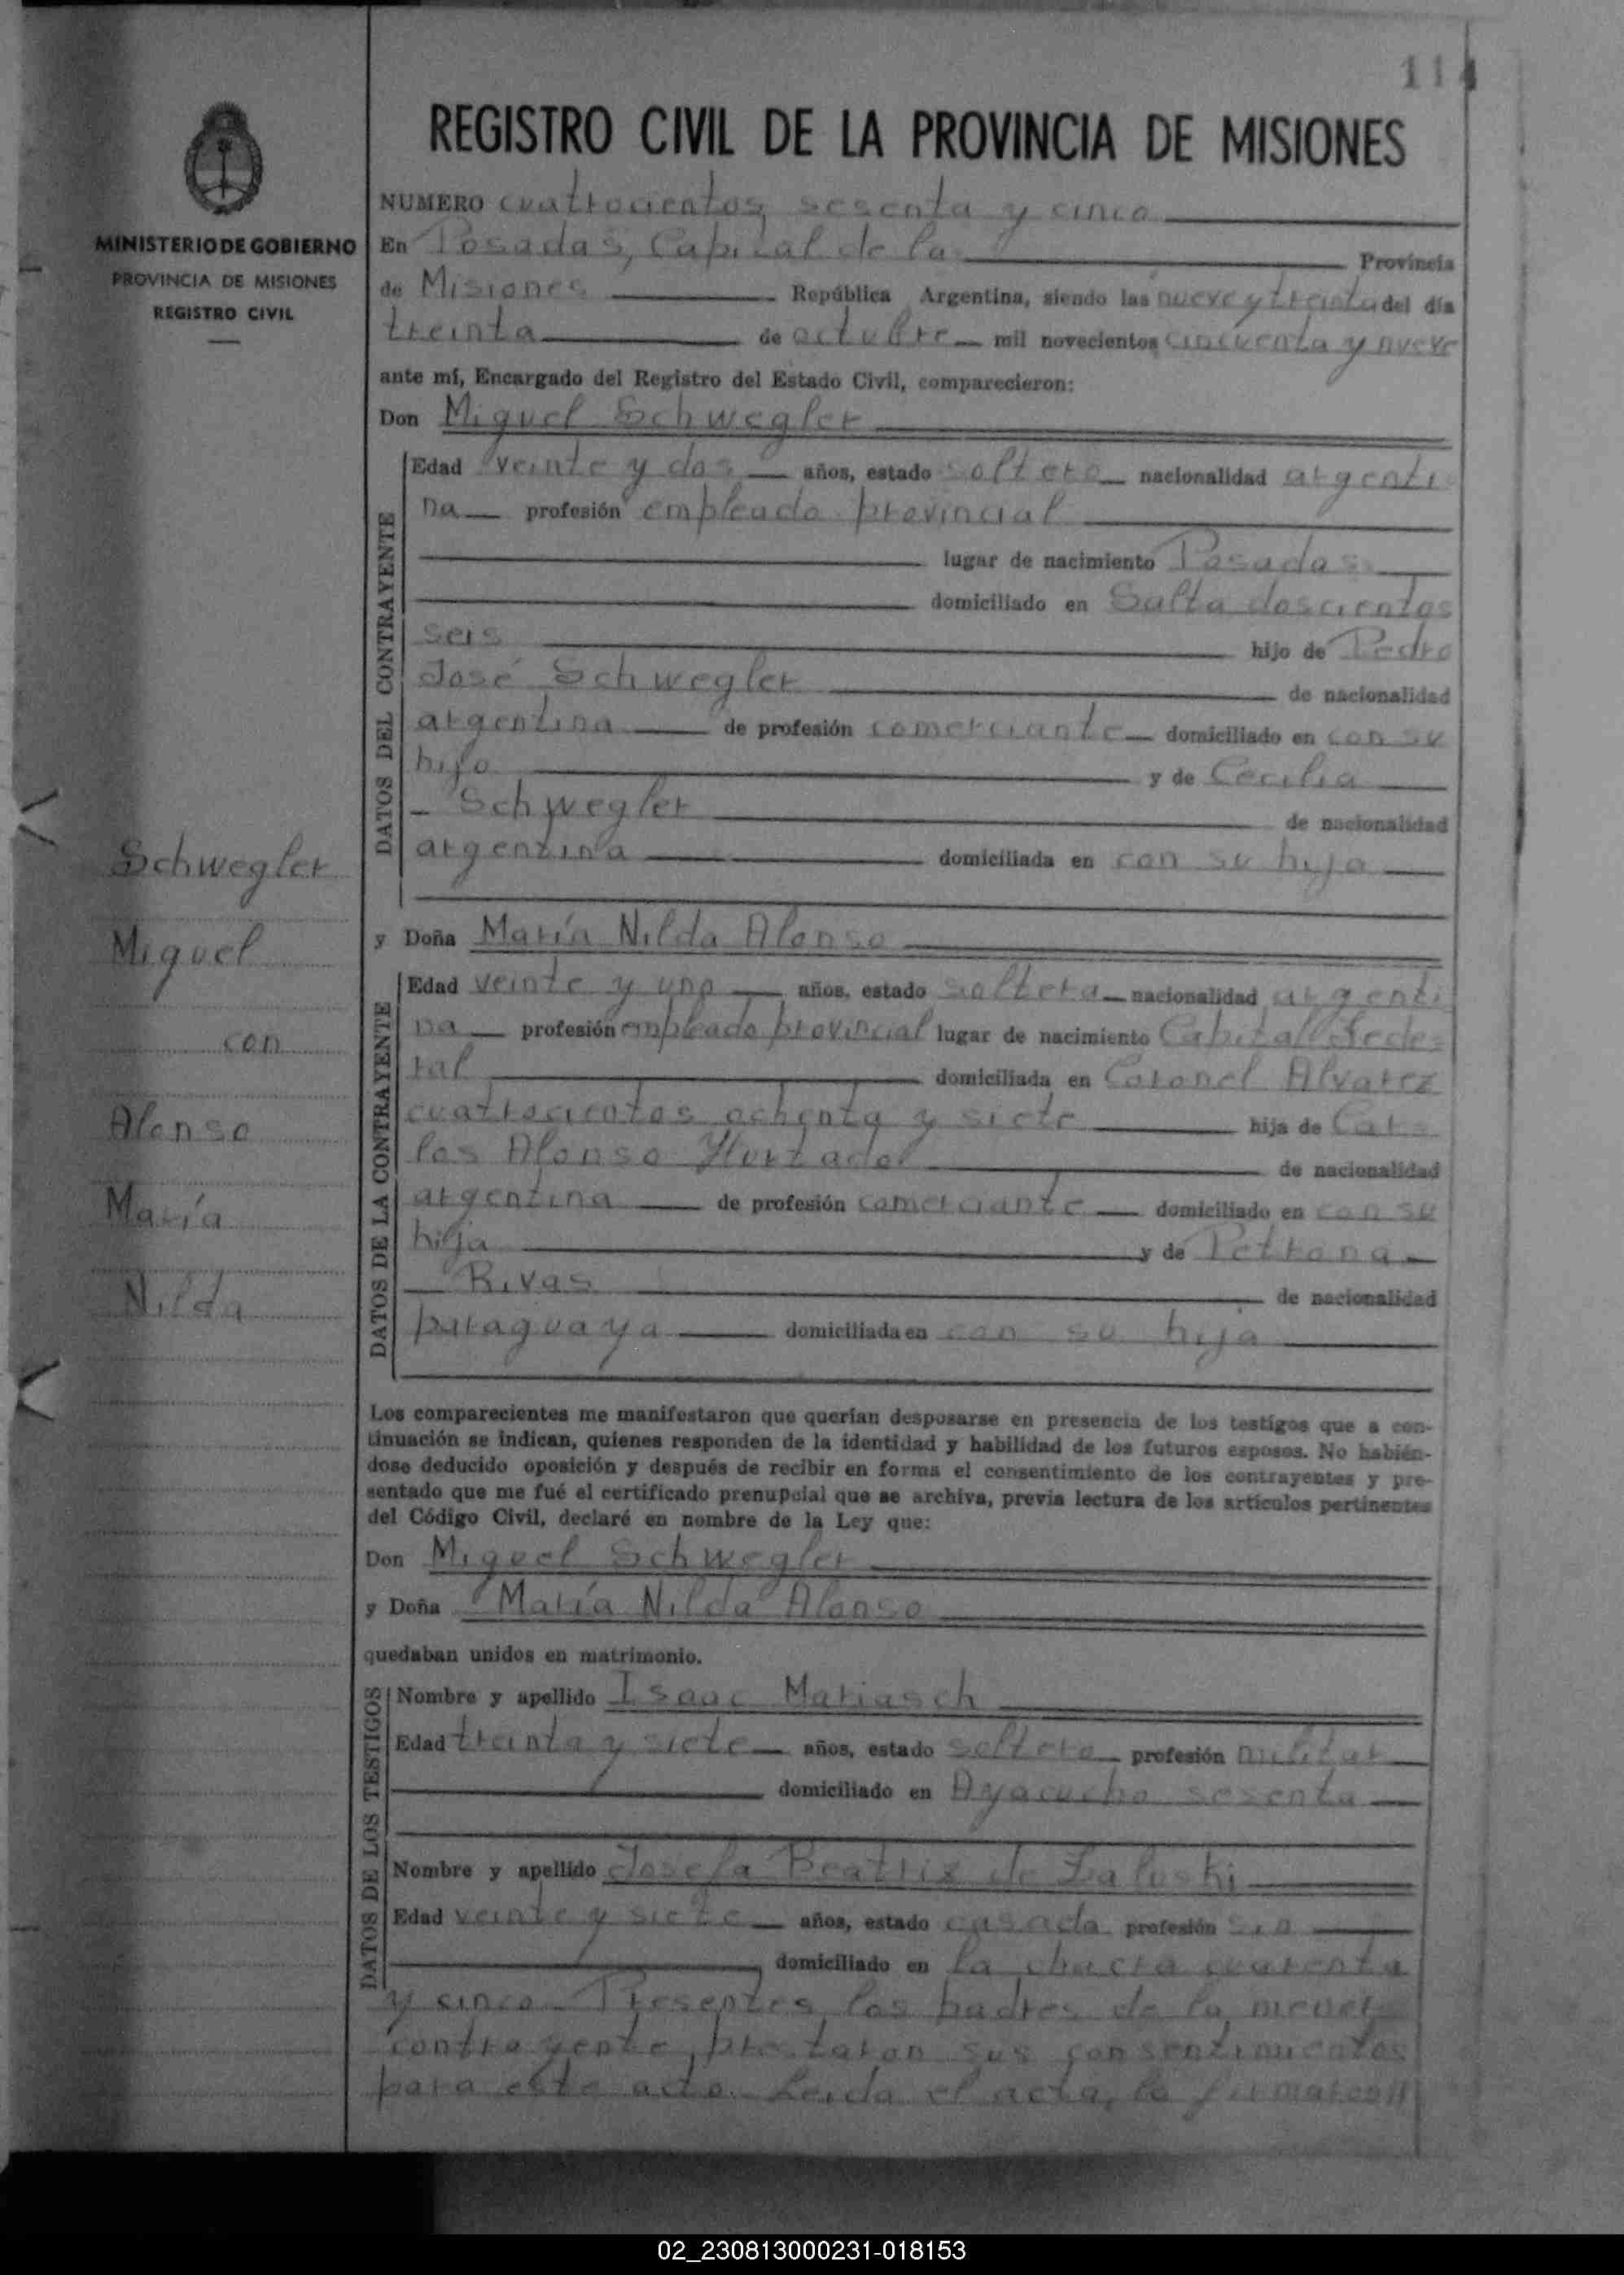 114
REGISTRO CIVIL DE LA PROVINCIA DE MISIONES
MINISTERIO DE GOBIERNO
PROVINCIA DE MISIONES
REGISTRO CIVIL
NUMERO cuatrocientos sesenta y cinco
En Posadas, Capital de la Provincia
de Misiones República Argentina, siendo las nueve y treinta del día
treinta de octubre mil novecientos cincuenta y nueve
ante mí, Encargado del Registro del Estado Civil, comparecieron:
Don Miguel Schwegler
DATOS DEL CONTRAYENTE
Edad veinte y dos años, estado soltero nacionalidad argenti
na profesión empleado provincial
lugar de nacimiento Posadas
domiciliado en Salta doscientos
seis hijo de Pedro
José Schwegler de nacionalidad
argentina de profesión comerciante domiciliado en con su
hijo y de Cecilia
Schwegler de nacionalidad
argentina domiciliada en con su hijo
Schwegler
Miguel
con
Alonso
María
Nilda
y Doña María Nilda Alonso
DATOS DE LA CONTRAYENTE
Edad veinte y uno años, estado soltera nacionalidad argenti
na profesión empleado provincial lugar de nacimiento Capital Fede=
ral domiciliada en Coronel Alvarez
cuatrocientos ochenta y siete hija de Car=
los Alonso Hurtado de nacionalidad
argentina de profesión comerciante domiciliado en con su
hija y de Petrona
Rivas de nacionalidad
paraguaya domiciliada en con su hija
Los comparecientes me manifestaron que querían desposarse en presencia de los testigos que a con-
tinuación se indican, quienes responden de la identidad y habilidad de los futuros esposos. No habién-
dose deducido oposición y después de recibir en forma el consentimiento de los contrayentes y pre-
sentado que me fué el certificado prenupcial que se archiva, previa lectura de los artículos pertinentes
del Código Civil, declaré en nombre de la Ley que:
Don Miguel Schwegler
y Doña María Nilda Alonso
quedaban unidos en matrimonio.
DATOS DE LOS TESTIGOS
Nombre y apellido Isaac Mariasch
Edad treinta y siete años, estado soltero profesión militar
domiciliado en Ayacucho sesenta
Nombre y apellido Josefa Beatriz de Zaluski
Edad veinte y siete años, estado casada profesión sin
domiciliado en la chacra cuarenta
y cinco. Presentes los padres de la menor
contrayente, prestaron sus consentimientos
para este acto. Leida el acta, la firmaron
02_230813000231-018153